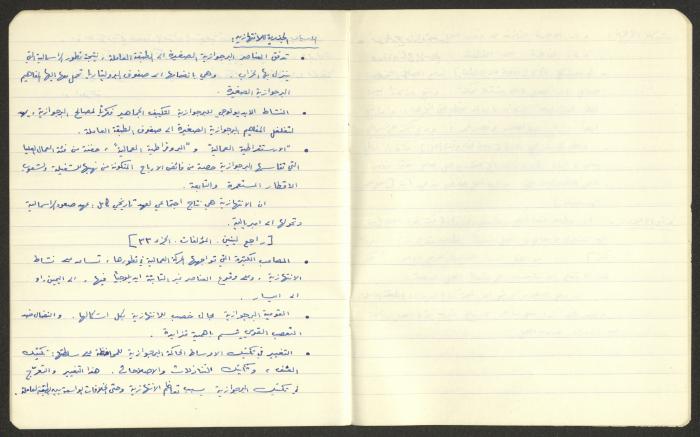 الجذرية للانتهازية:
• تدفق العناصر البرجوازية الصغيرة الى الطبقة العاملة، نتيجة تطور الرأسمالية التي
ينزل بها الخراب. وهي بانضمامها الى صفوف البروليتاريا تحمل معها اليها المفاهيم
البرجوازية الصغيرة.
• النشاط الايديولوجي للبرجوازية لتكييف الجماهير فكريا لمصالح البرجوازية،
لتغلغل المفاهيم البرجوازية الصغيرة الى صفوف الطبقة العاملة.
• "الارستقراطية العمالية" و "البروقراطية العمالية"، حفنة من فئة العمال العليا
التي تقاسمها البرجوازية حصة من فائض الارباح المتكونة من نهبها للشغيلة ولشعوب
الاقطار المستعمرة والتابعة.
ان الانتهازية هي نتاج اجتماعي لعهد تاريخي كامل: عهد صعود الرأسمالية
وتحولها الى امبريالية.
[راجع لينين. المؤلفات. الجزء ٣٣]
• المصاعب الكثيرة التي تواجهها الحركة العمالية في تطورها، تساعد على نشاط
الانتهازية، وعلى وقوع العناصر غير الثابتة ايديولوجيا فيها، الى اليمين او
الى اليسار.
• القومية البرجوازية مجال خصب للانتهازية بكل اشكالها. والنضال ضد
التعصب القومي يتسم باهمية متزايدة.
• التغيير في تكتيك الاوساط الحاكمة البرجوازية للمحافظة على سلطتها: تكتيك
العنف، وتكتيك التنازلات والاصلاحات. هذا التغيير والتعرج
في تكتيك البرجوازية يسبب تعاظم الانتهازية وحتى الخلافات بواسطة الطبقة العاملة